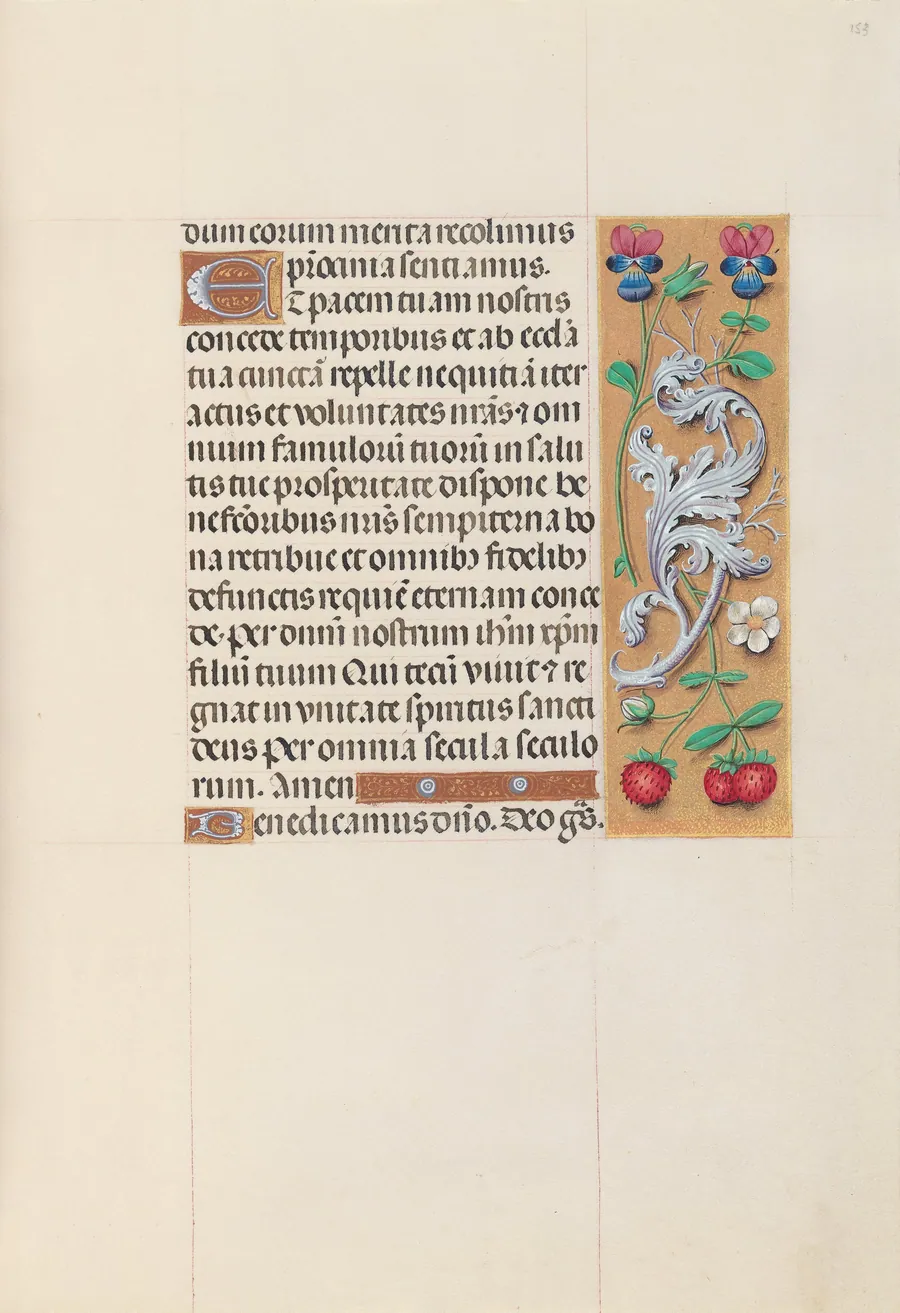 153
dum eorum merita recolimus
pr̄ocinia sentiamus.
Et pacem tuam nostris
concede temporibus et ab eccl̄ā
tua cunctā repelle nequitiā iter
actus et voluntates nr̄as ⁊ om
nium famulorū tuorū in salu
tis tue prosperitate dispone be
nefc̄oribus nr̄is sempiterna bo
na retribue et omnibꝫ fidelibꝫ
defunctis requiē eternam conce
de. per dnm̄ nostrum ihm̄ xp̄m
filiū tuum Qui tecū viuit ⁊ re
gnat in vnitate spiritus sancti
deus Per omnia secula seculo
rum. Amen
Benedicamus dn̄o. Deo gr̄as.